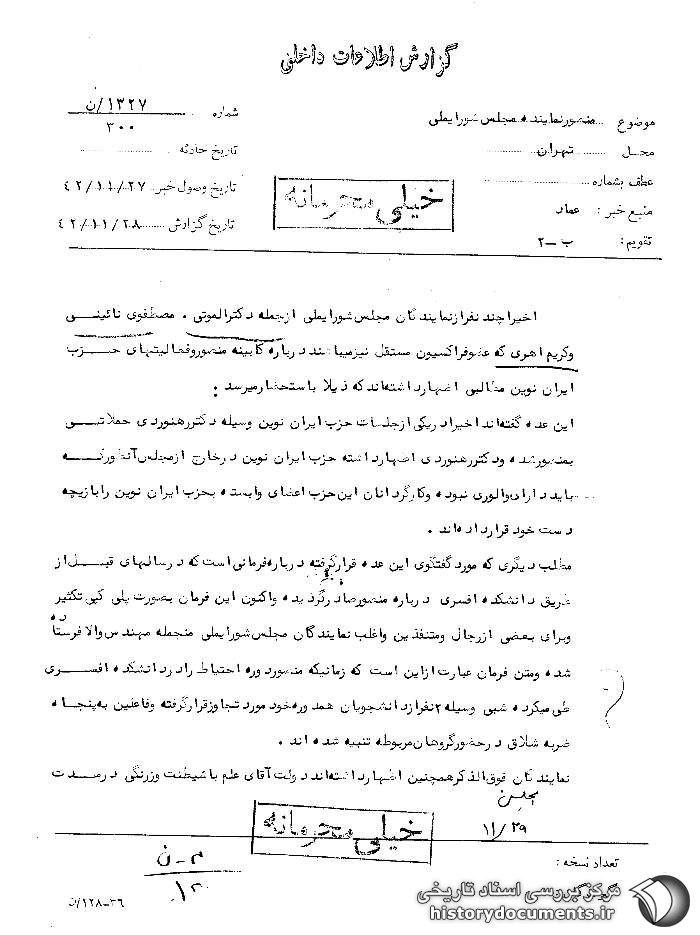 گزارش اطلاعات داخلی
موضوع منصور نماینده مجلس شورایملی
شماره ۱۳۲۷/ن
۳۰۰
محل تهران
تاریخ حادثه
عطف بشماره
تاریخ وصول خبر ۴۲/۱۱/۲۷
منبع خبر : عماد
تاریخ گزارش ۴۲/۱۱/۲۸
تقویم : ب-۲
خیلی محرمانه
اخیرا چند نفر از نمایندگان مجلس شورایملی ازجمله دکتر الموتی . مصطفوی نائینی
وکریم اهری که عضو فراکسیون مستقل نیز میباشند درباره کابینه منصور وفعالیتهای حزب
ایران نوین مطالبی اظهار داشته‌اند که ذیلا باستحضار میرسد :
این عده گفته‌اند اخیرا دریکی ازجلسات حزب ایران نوین وسیله دکتر رهنوردی حملاتی
بمنصور شده ودکتر رهنوردی اظهار داشته حزب ایران نوین درخارج ازمجلس آنطور که
باید دارای والوری نبوده وکارگردانان این حزب اعضای وابسته بحزب ایران نوین را بازیچه
دست خود قرار داده‌اند .
مطلب دیگری که مورد گفتگوی این عده قرار گرفته درباره فرمانی است که در سالهای قبل از
طریق دانشکده افسری درباره منصور صادر گردیده واکنون این فرمان بصورت پلی کپی تکثیر
وبرای بعضی از رجال ومتنفذین واغلب نمایندگان مجلس شورایملی منجمله مهندس والا فرستاده
شده ومتن فرمان عبارت ازاین است که زمانیکه منصور دوره احتیاط را در دانشکده افسری
طی میکرده شبی وسیله ۲ نفر از دانشجویان همدوره خود مورد تجاوز قرار گرفته وفاعلین به پنجاه
ضربه شلاق در حضور گروهان مربوطه تنبیه شده اند .
نمایندگان فوق الذکر همچنین اظهار داشته‌اند دولت آقای علم با شیطنت وزرنگی درمدت
مجلس
۱۱/۲۹
خیلی محرمانه
تعداد نسخه :
م-ن
۱۲۸-۳۶/ن
مرکز بررسی اسناد تاریخی
historydocuments.ir